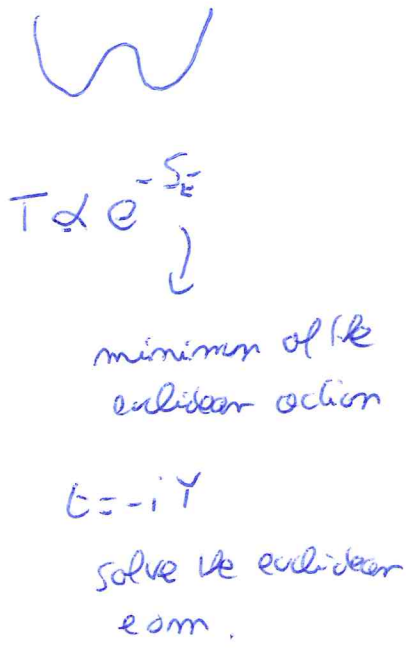 T ∝ e^{-S_E}
minimum of the
euclidean action
t = -i τ
solve the euclidean
eom.